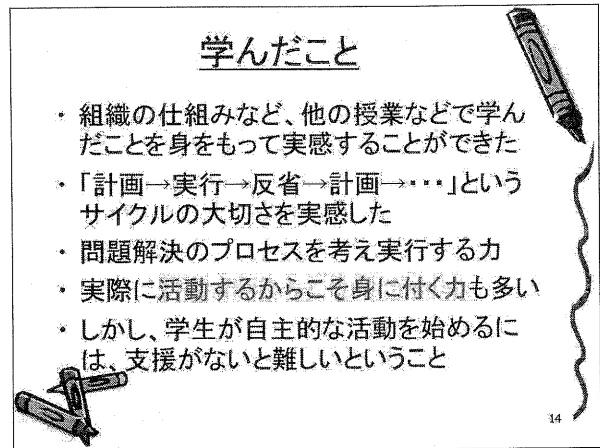 学んだこと
・ 組織の仕組みなど、他の授業などで学ん
だことを身をもって実感することができた
・ 「計画→実行→反省→計画→・・・」という
サイクルの大切さを実感した
・ 問題解決のプロセスを考え実行する力
・ 実際に活動するからこそ身に付く力も多い
・ しかし、学生が自主的な活動を始めるに
は、支援がないと難しいということ
14